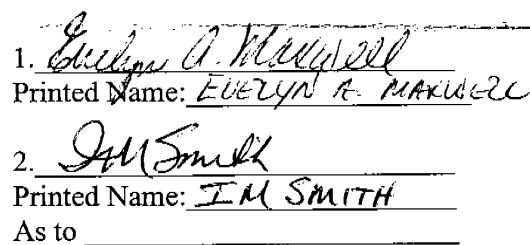 1. Evelyn A. Maxwell
Printed Name: EVELYN A. MAXWELL
2. IM Smith
Printed Name: IM SMITH
As to